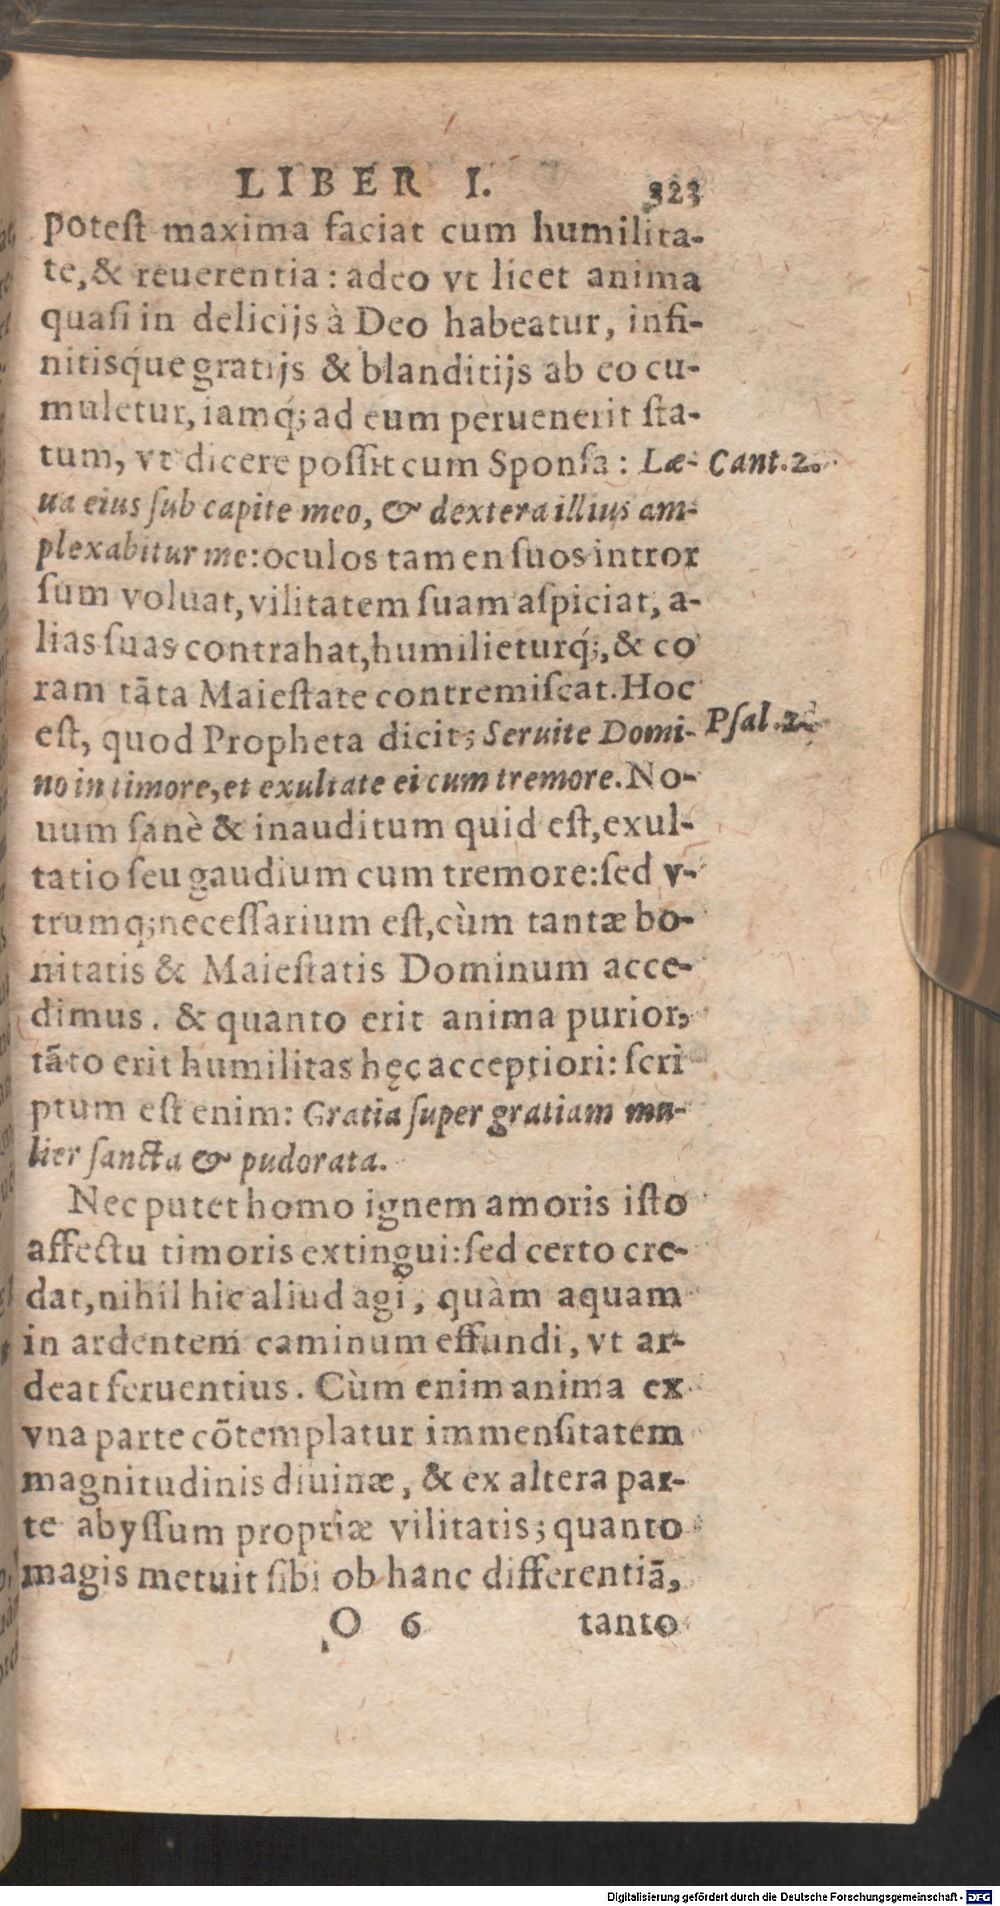 LIBER I. 323
potest maxima faciat cum humilita-
te, & reuerentia: adeo vt licet anima
quasi in delicijs à Deo habeatur, infi-
nitisq́ue gratijs & blanditijs ab eo cu-
muletur, iamq́; ad eum peruenerit sta-
tum, vt dicere possit cum Sponsa: Læ- Cant. 2.
ua eius sub capite meo, & dextera illius am-
plexabitur me: oculos tamen suos intror
sum voluat, vilitatem suam aspiciat, a-
lias suas contrahat, humilieturq́;, & co
ram tãta Maiestate contremiscat. Hoc
est, quod Propheta dicit; Seruite Domi- Psal. 2.
no in timore, et exultate ei cum tremore. No-
uum sanè & inauditum quid est, exul-
tatio seu gaudium cum tremore: sed v-
trumq; necessarium est, cùm tantæ bo-
nitatis & Maiestatis Dominum acce-
dimus. & quanto erit anima purior,
tãto erit humilitas hęc acceptiori: scri
ptum est enim: Gratia super gratiam mu-
lier sancta & pudorata.
Nec putet homo ignem amoris isto
affectu timoris extingui: sed certo cre-
dat, nihil hic aliud agi, quàm aquam
in ardentem caminum effundi, vt ar-
deat feruentius. Cùm enim anima ex
vna parte cõtemplatur immensitatem
magnitudinis diuinæ, & ex altera par-
te abyssum propriæ vilitatis; quanto
magis metuit sibi ob hanc differentiã,
O 6 tanto
Digitalisierung gefördert durch die Deutsche Forschungsgemeinschaft - DFG